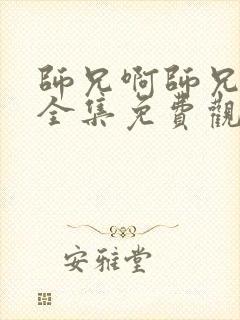 師兄啊師兄
全集免費觀
安雅堂